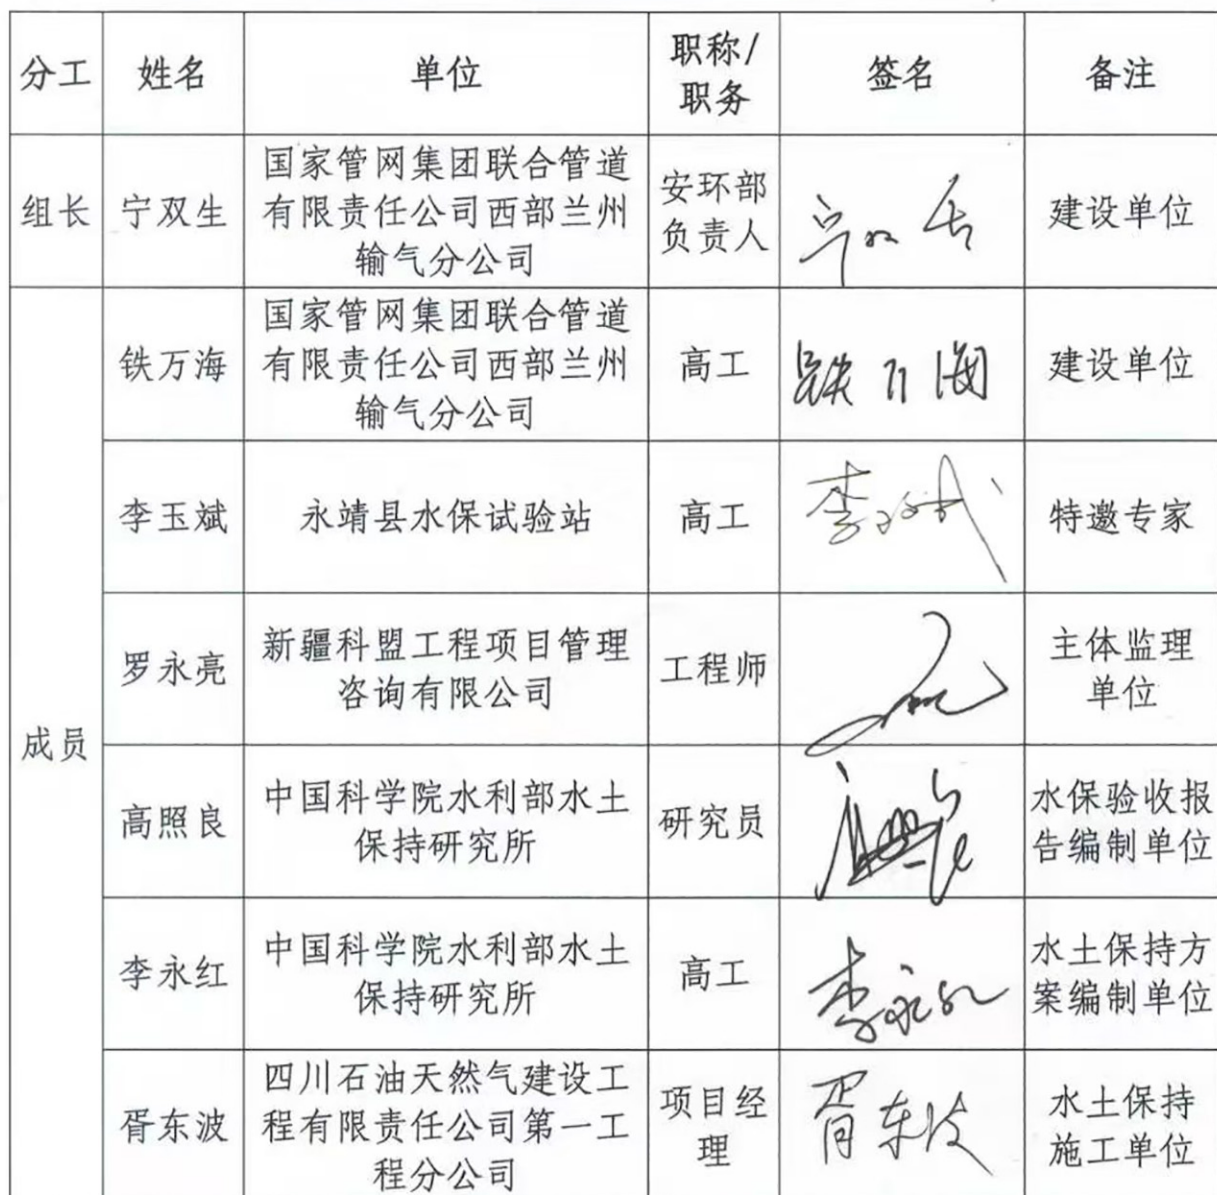 分工 姓名 单位 职称/职务 签名 备注
组长 宁双生 国家管网集团联合管道有限责任公司西部兰州输气分公司 安环部负责人 建设单位
成员 铁万海 国家管网集团联合管道有限责任公司西部兰州输气分公司 高工 铁万海 建设单位
李玉斌 永靖县水保试验站 高工 李玉斌 特邀专家
罗永亮 新疆科盟工程项目管理咨询有限公司 工程师 主体监理单位
高照良 中国科学院水利部水土保持研究所 研究员 水保验收报告编制单位
李永红 中国科学院水利部水土保持研究所 高工 李永红 水土保持方案编制单位
胥东波 四川石油天然气建设工程有限责任公司第一工程分公司 项目经理 胥东波 水土保持施工单位